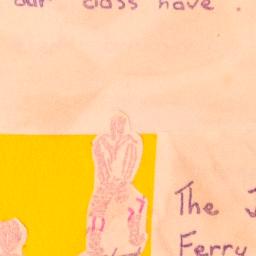 our class have .
The J
Ferry